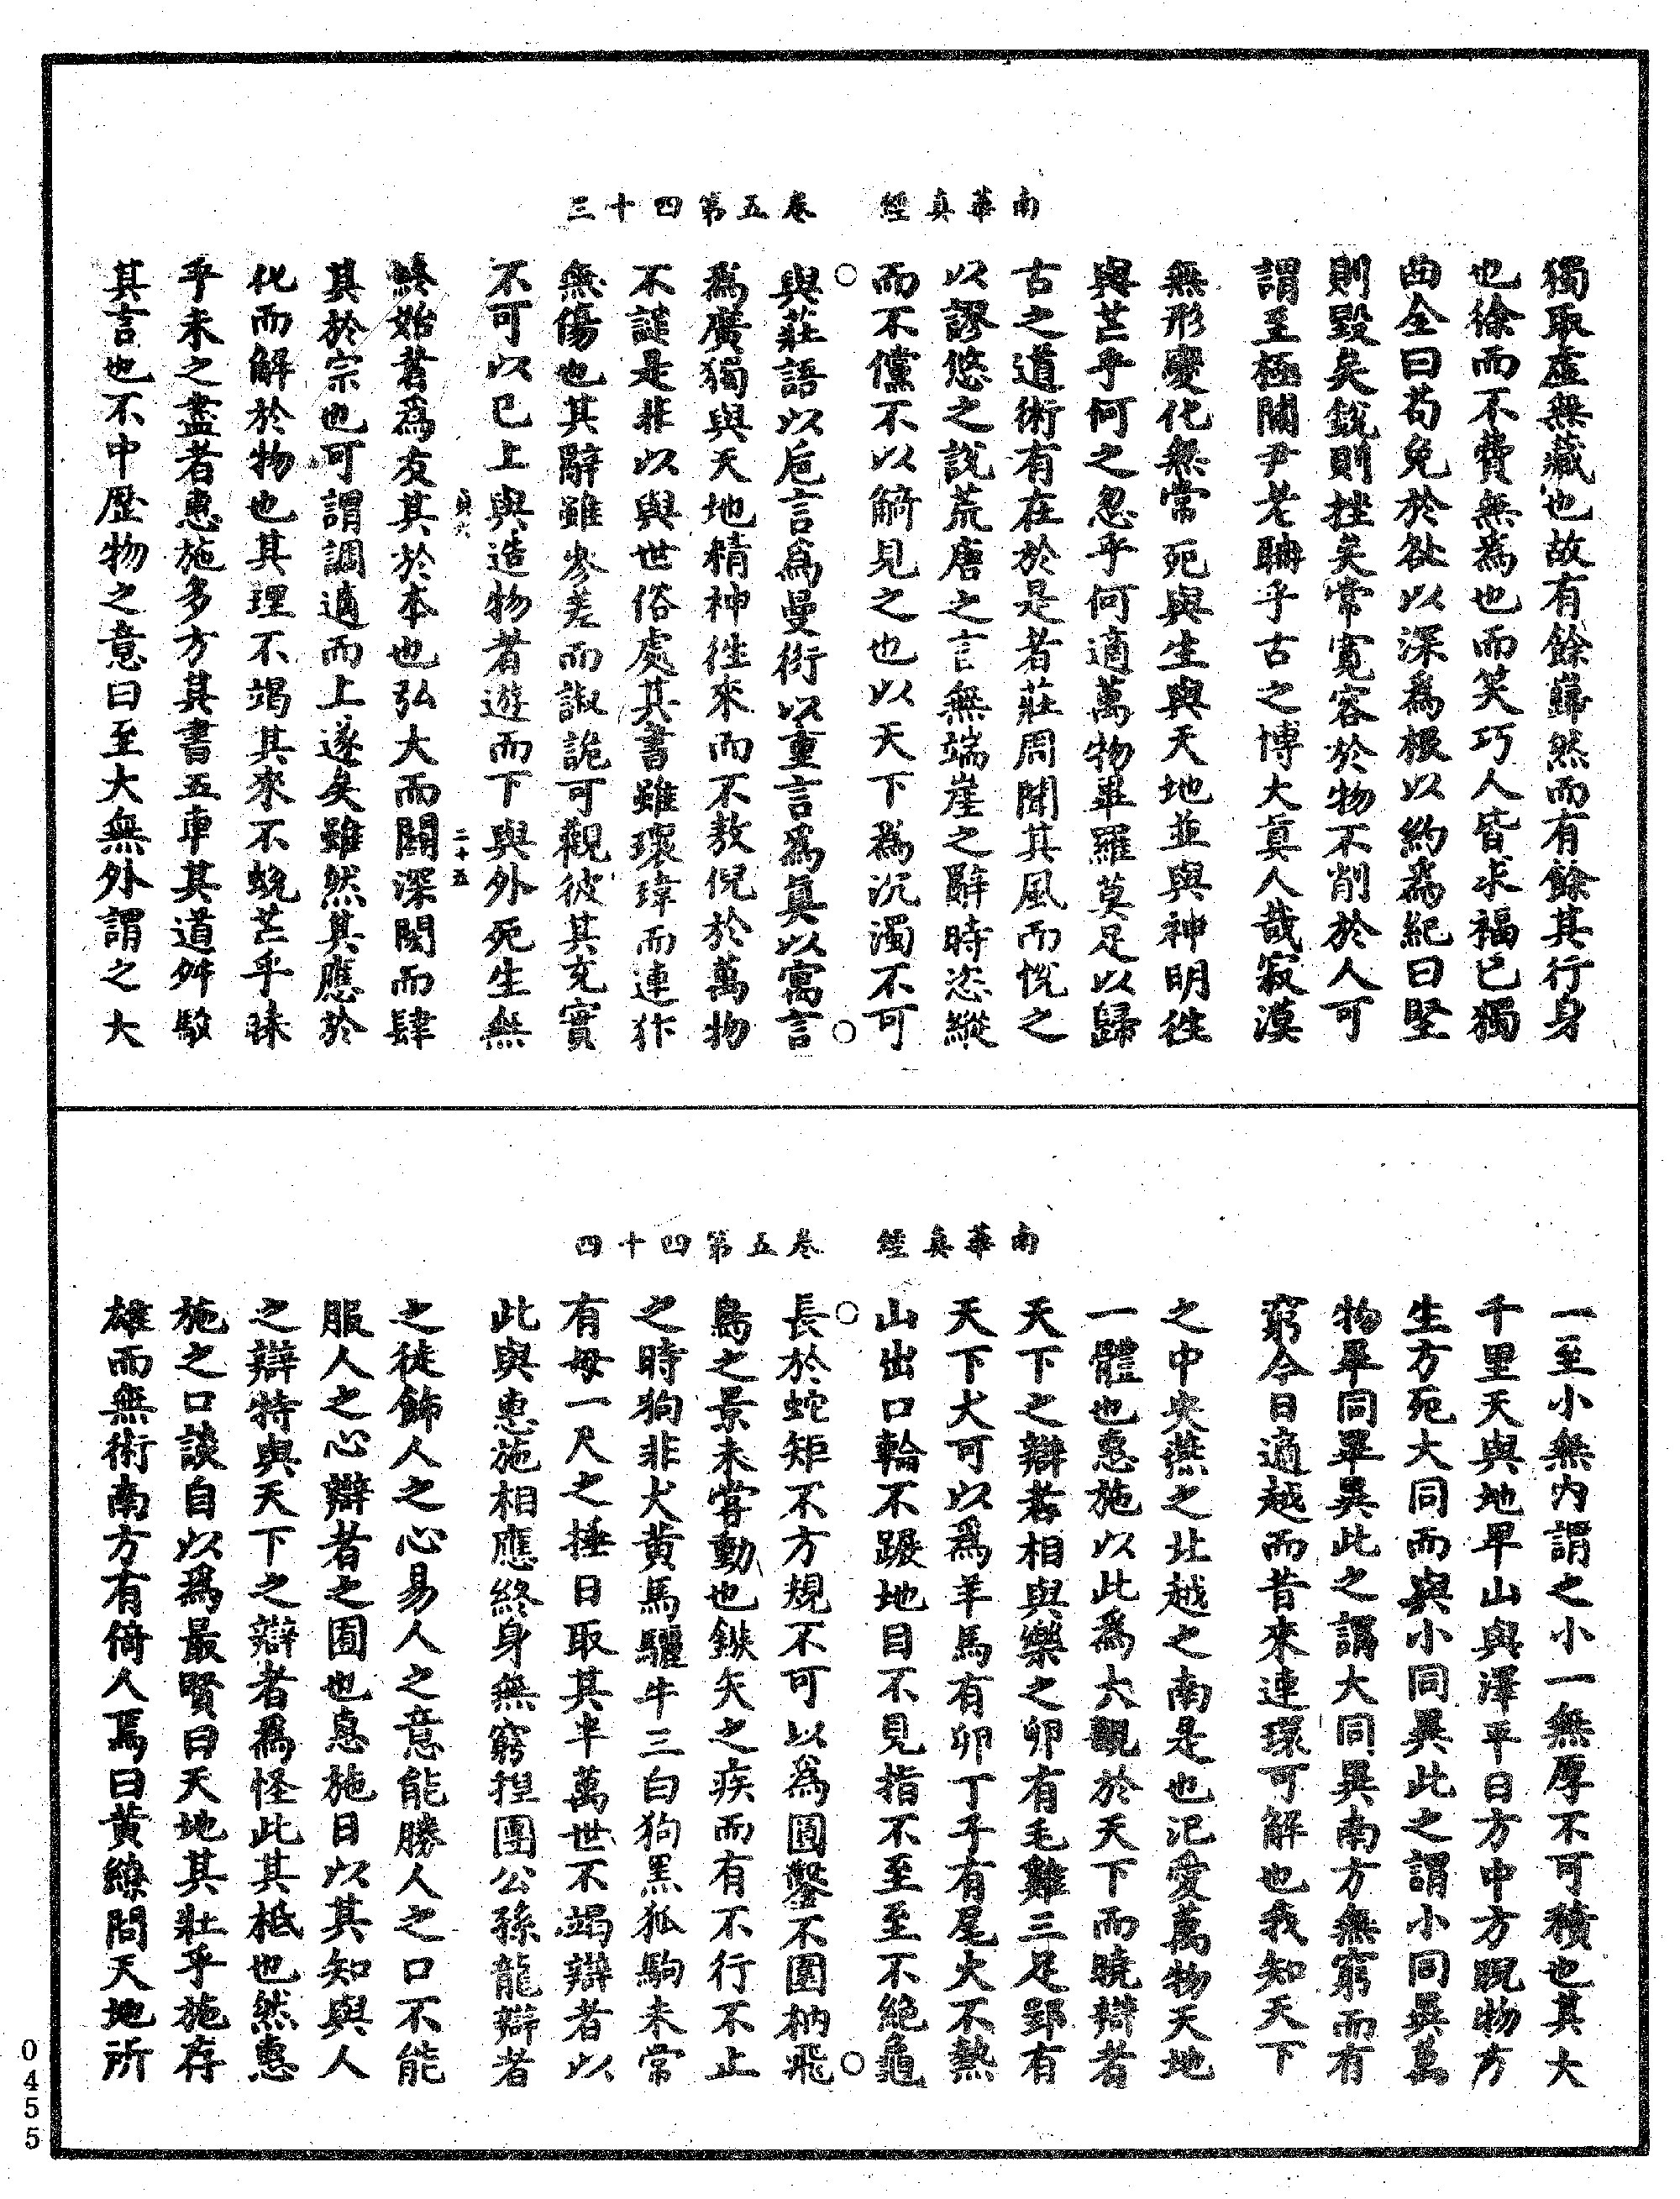 南華真經　卷五第四十三
獨取虛無藏也故有餘巋然而有餘其行身
也徐而不費無為也而笑巧人皆求福已獨
曲全曰苟免於咎以深為根以約為紀曰堅
則毀矣銳則挫矣常寬容於物不削於人可
謂至極關尹老聃乎古之博大真人哉寂漠
無形變化無常死與生與天地並與神明徃
與芒乎何之忽乎何適萬物畢羅莫足以歸
古之道術有在於是者莊周聞其風而恱之
以謬悠之說荒唐之言無端崖之辭時恣縱
而不儻不以觭見之也以天下為沉濁不可
與莊語以巵言為曼衍以重言為真以寓言
為廣獨與天地精神徃來而不敖倪於萬物
不譴是非以與世俗處其書雖瓌瑋而連犿
無傷也其辭雖參差而諔詭可觀彼其充實
不可以已上與造物者遊而下與外死生無
二十五
終始者為友其於本也弘大而闢深閎而肆
其於宗也可謂調適而上遂矣雖然其應於
化而解於物也其理不竭其來不蛻芒乎昧
乎未之盡者惠施多方其書五車其道舛駮
其言也不中歷物之意曰至大無外謂之大
南華真經　卷五第四十四
一至小無內謂之小一無厚不可積也其大
千里天與地卑山與澤平日方中方睨物方
生方死大同而與小同異此之謂小同異萬
物畢同畢異此之謂大同異南方無窮而有
窮今日適越而昔來連環可解也我知天下
之中央燕之北越之南是也汜愛萬物天地
一體也惠施以此為大觀於天下而曉辯者
天下之辯者相與樂之卵有毛雞三足郢有
天下犬可以為羊馬有卵丁子有尾火不熱
山出口輪不蹍地目不見指不至至不絕龜
長於蛇矩不方規不可以為圓鑿不圍枘飛
鳥之景未甞動也鏃矢之疾而有不行不止
之時狗非犬黃馬驪牛三白狗黑孤駒未常
有母一尺之捶日取其半萬世不竭辯者以
此與惠施相應終身無窮桓團公孫龍辯者
之徒飾人之心易人之意能勝人之口不能
服人之心辯者之囿也惠施日以其知與人
之辯特與天下之辯者為怪此其柢也然惠
施之口談自以為最賢曰天地其壯乎施存
雄而無術南方有倚人焉曰黃繚問天地所
0455